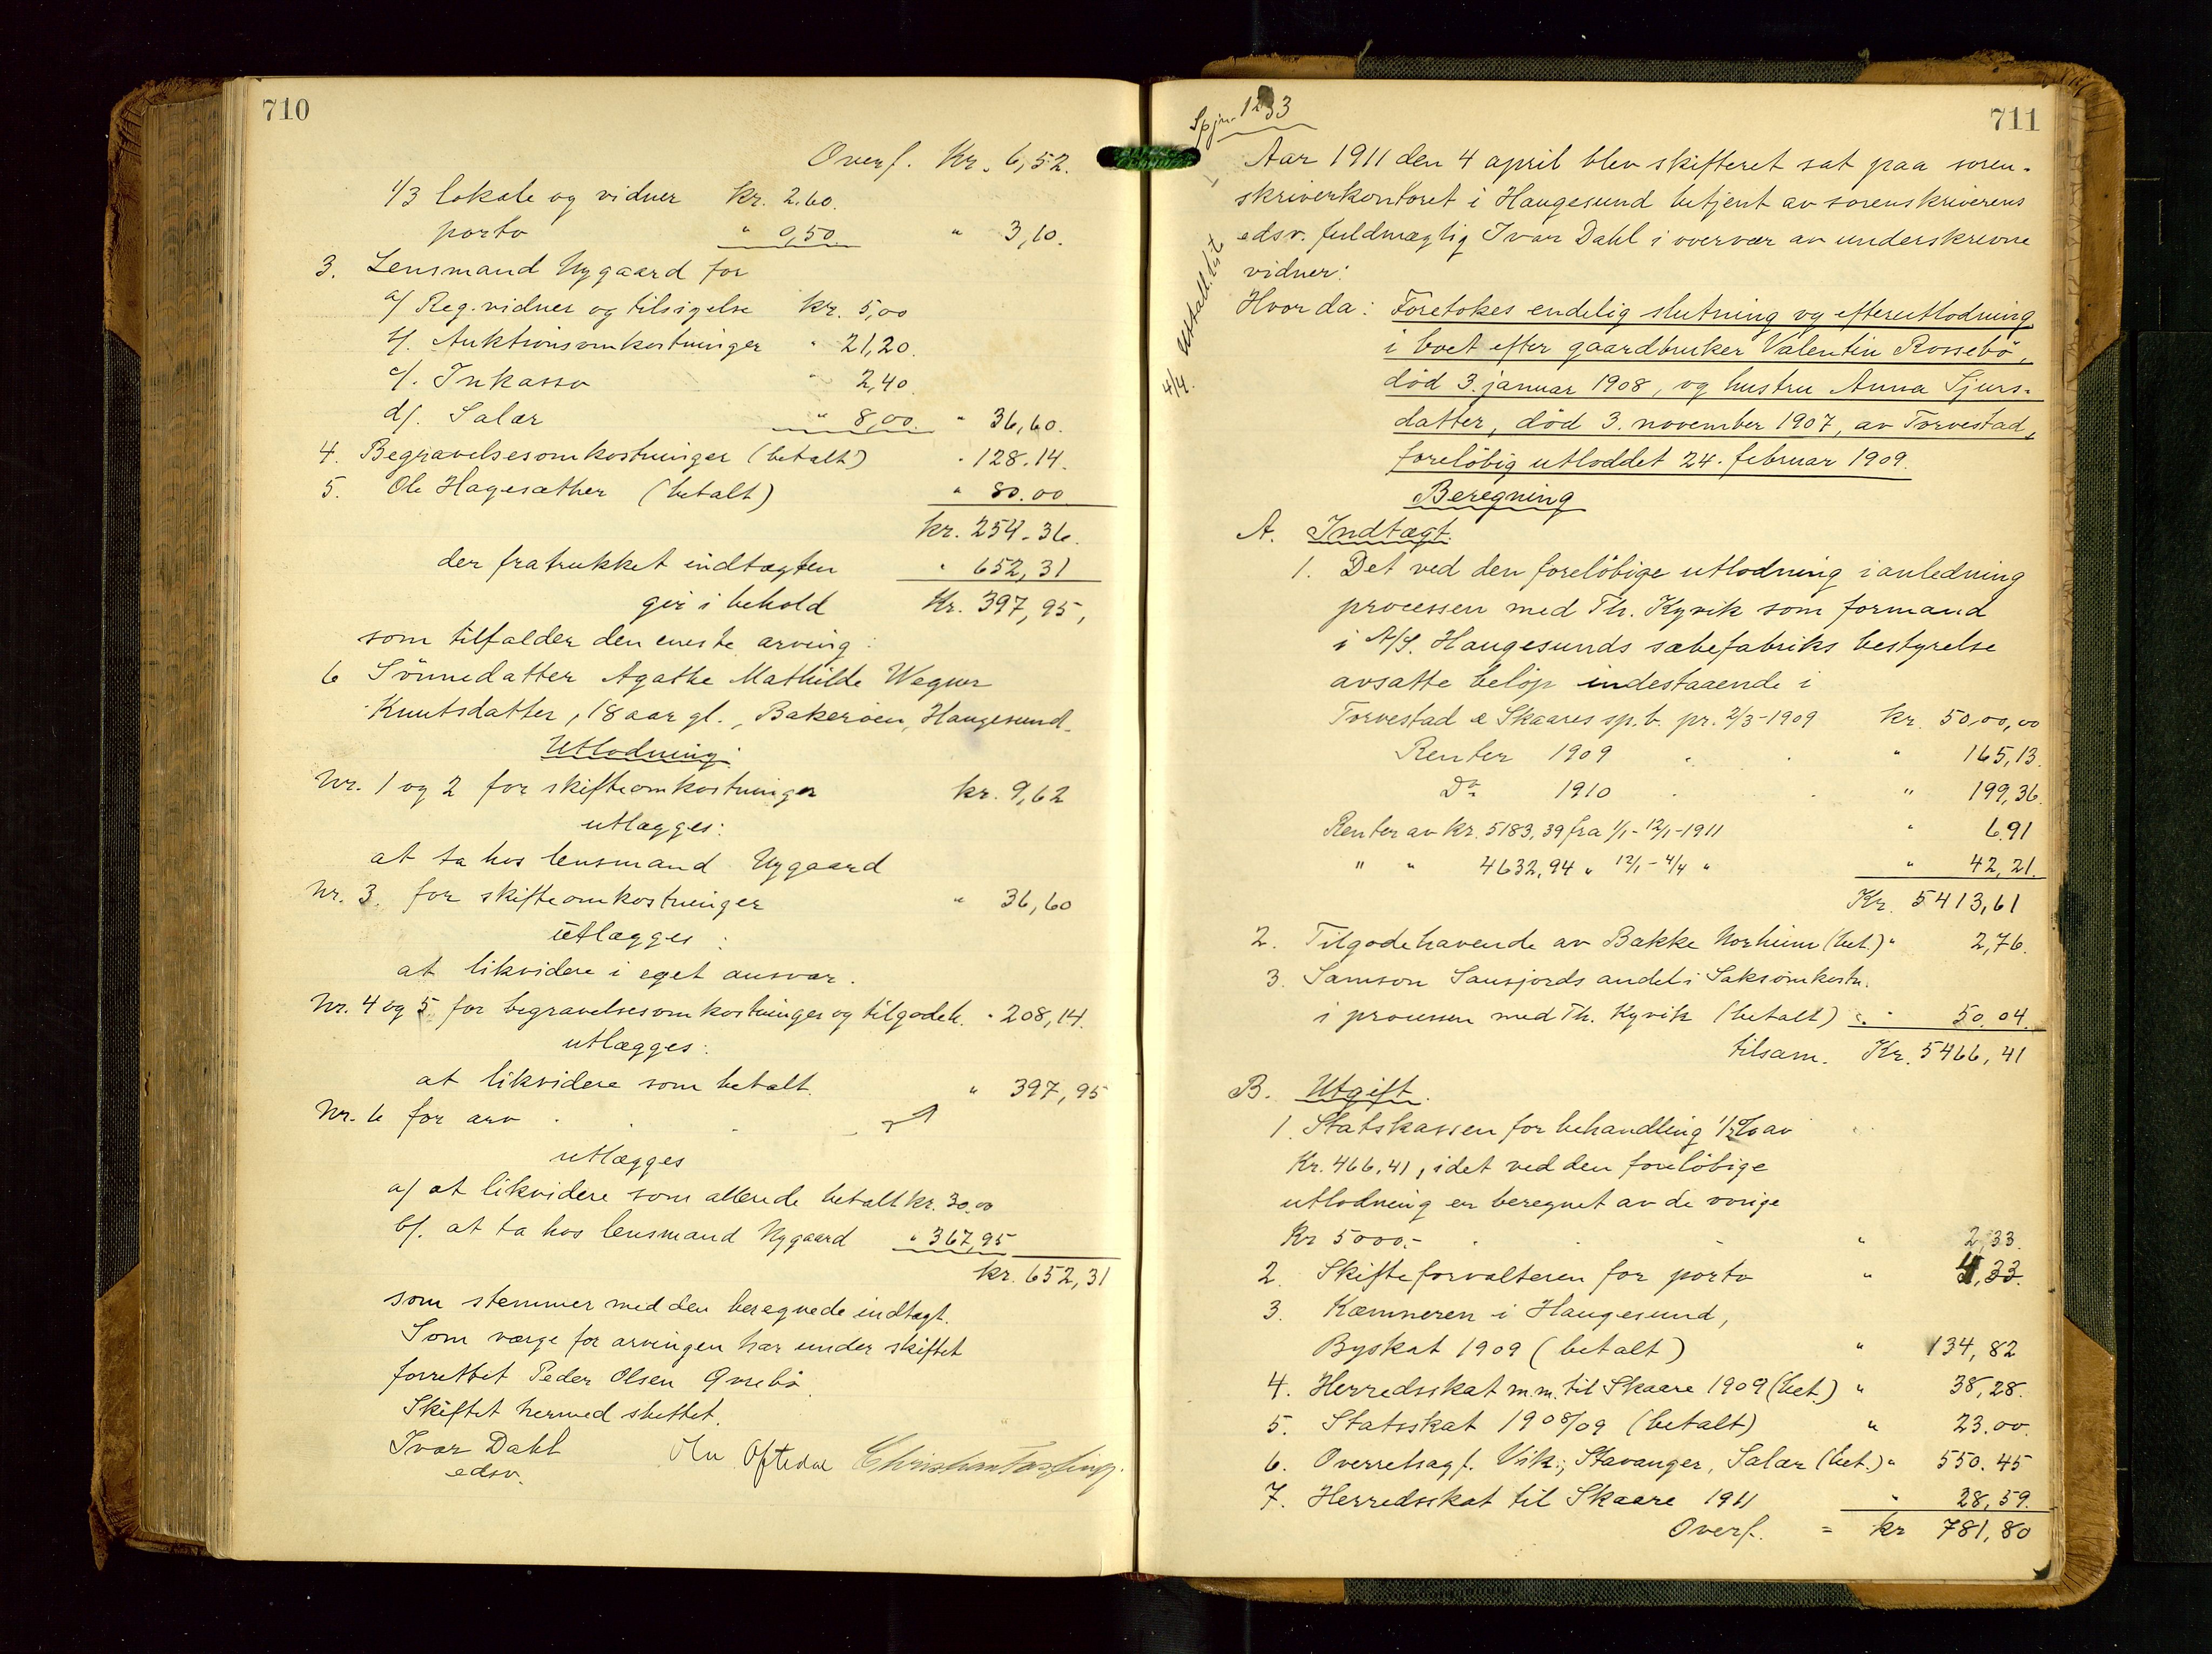 710
Overf. Kr. 6,52.
1/3 lokale og vidner kr. 2.60.
porto " 0,50. " 3,10.
3. Lensmand Nygaard for
a/ Reg. vidner og tilsigelse kr. 5,00
b/. Auktionsomkostninger " 21,20.
c/. Inkasso " 2,40.
d/. Salær " 8,00. " 36,60.
4. Begravelsesomkostninger (betalt) " 128.14.
5. Ole Hagesæther (betalt) " 80.00
kr. 254.36.
der fratrukket indtægten " 652,31
gir i behold Kr. 397,95,
som tilfalder den eneste arving:
6 Sönnedatter Agathe Mathilde Wegner
Knutsdatter, 18 aar gl., Bakerøen, Haugesund.
Utlodning:
Nr. 1 og 2 for skifteomkostninger kr. 9,62
utlægges:
at ta hos lensmand Nygaard
Nr. 3. for skifteomkostninger " 36,60
utlægges:
at likvidere i eget ansvar.
Nr. 4 og 5 for begravelsesomkostninger og tilgodeh. " 208,14.
utlægges:
at likvidere som betalt. " 397,95
Nr. 6 for arv . . .
utlægges
a/ at likvidere som allerede betalt kr. 30.00
b/. at ta hos lensmand Nygaard " 367,95
kr. 652,31
som stemmer med den beregnede indtægt.
Som værge for arvingen har under skiftet
forrettet Peder Olsen Qvrebö.
Skiftet hermed sluttet.
Ivar Dahl Oftedal Christian
edsv.
711
Spjr. 1233
Utskall. list
4/4.
Aar 1911 den 4 april blev skifteret sat paa soren-
skriverkontoret i Haugesund betjent av sorenskriverens
edsv. fuldmægtig Ivar Dahl i overvær av underskrevne
vidner:
Hvor da: Foretokes endelig slutning og efterutlodning
i boet efter gaardbruker Valentin Rossebö,
död 3. januar 1908, og hustru Anna Sjurs-
datter, död 3. november 1907, av Torvestad,
forelöbig utloddet 24. februar 1909.
Beregning
A. Indtægt.
1. Det ved den forelöbige utlodning i anledning
processen med Th. Kyvik som formand
i A/S. Haugesunds sæbefabriks bestyrelse
avsatte belöp indestaaende i
Torvestad & Skaares sp.b. pr. 2/3-1909 kr. 50,00,00
Renter 1909 . . " 165,13.
Do 1910 . . " 199,36.
Renter av kr. 5183,39 fra 1/1-12/1-1911 " 6.91
" " 4632,94 " 12/1-4/4 " " 42,21.
Kr. 5413,61
2. Tilgodehavende av Bakke Norheim (bet.) " 2,76.
3. Samson Sausjords andel i Saksomkostn.
i processen med Th. Kyvik (betalt) " 50.04.
tilsam. Kr. 5466,41
B. Utgift.
1. Statskassen for behandling 1/2 % av
Kr. 466,41, idet ved den forelöbige
utlodning er beregnet av de övrige
Kr 5000.- . . " 2,33.
2. Skifteforvalteren for porto " 4,33.
3. Kæmneren i Haugesund,
Byskat 1909 (betalt) " 134,82
4. Herredsskat m.m. til Skaare 1909 (bet.) " 38,28.
5. Statsskat 1908/09 (betalt) " 23.00.
6. Overretsagf. Vik., Stavanger, Salær (bet.) " 550.45
7. Herredsskat til Skaare 1911 " 28,59.
Overf. = kr 781,80